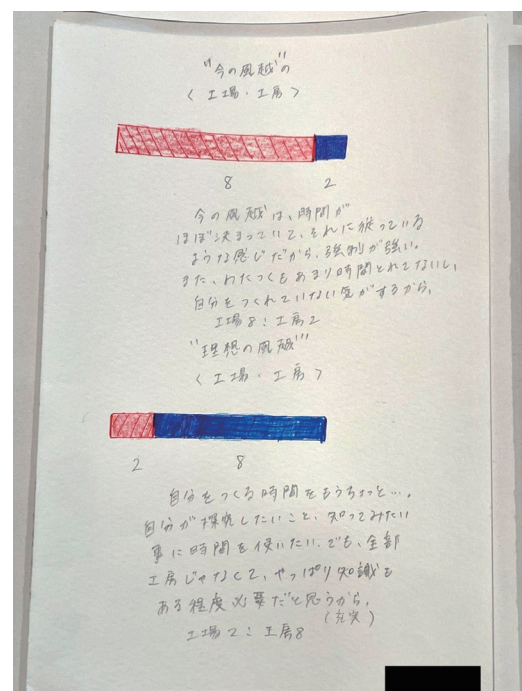 "今の風越"の
〈工場・工房〉
8 2
今の風越は、時間が
ほぼ決まっていて、それに従っている
ような感じだから、強制が強い。
また、わたつくもあまり時間とれてないし、
自分をつくれていない気がするから。
工場8:工房2
"理想の風越"
〈工場・工房〉
2 8
自分をつくる時間をもうちょっと…。
自分が探究したいこと、知ってみたい
事に時間を使いたい。でも、全部
工房じゃなくて、やっぱり知識も
ある程度必要だと思うから。
(充実)
工場2:工房8